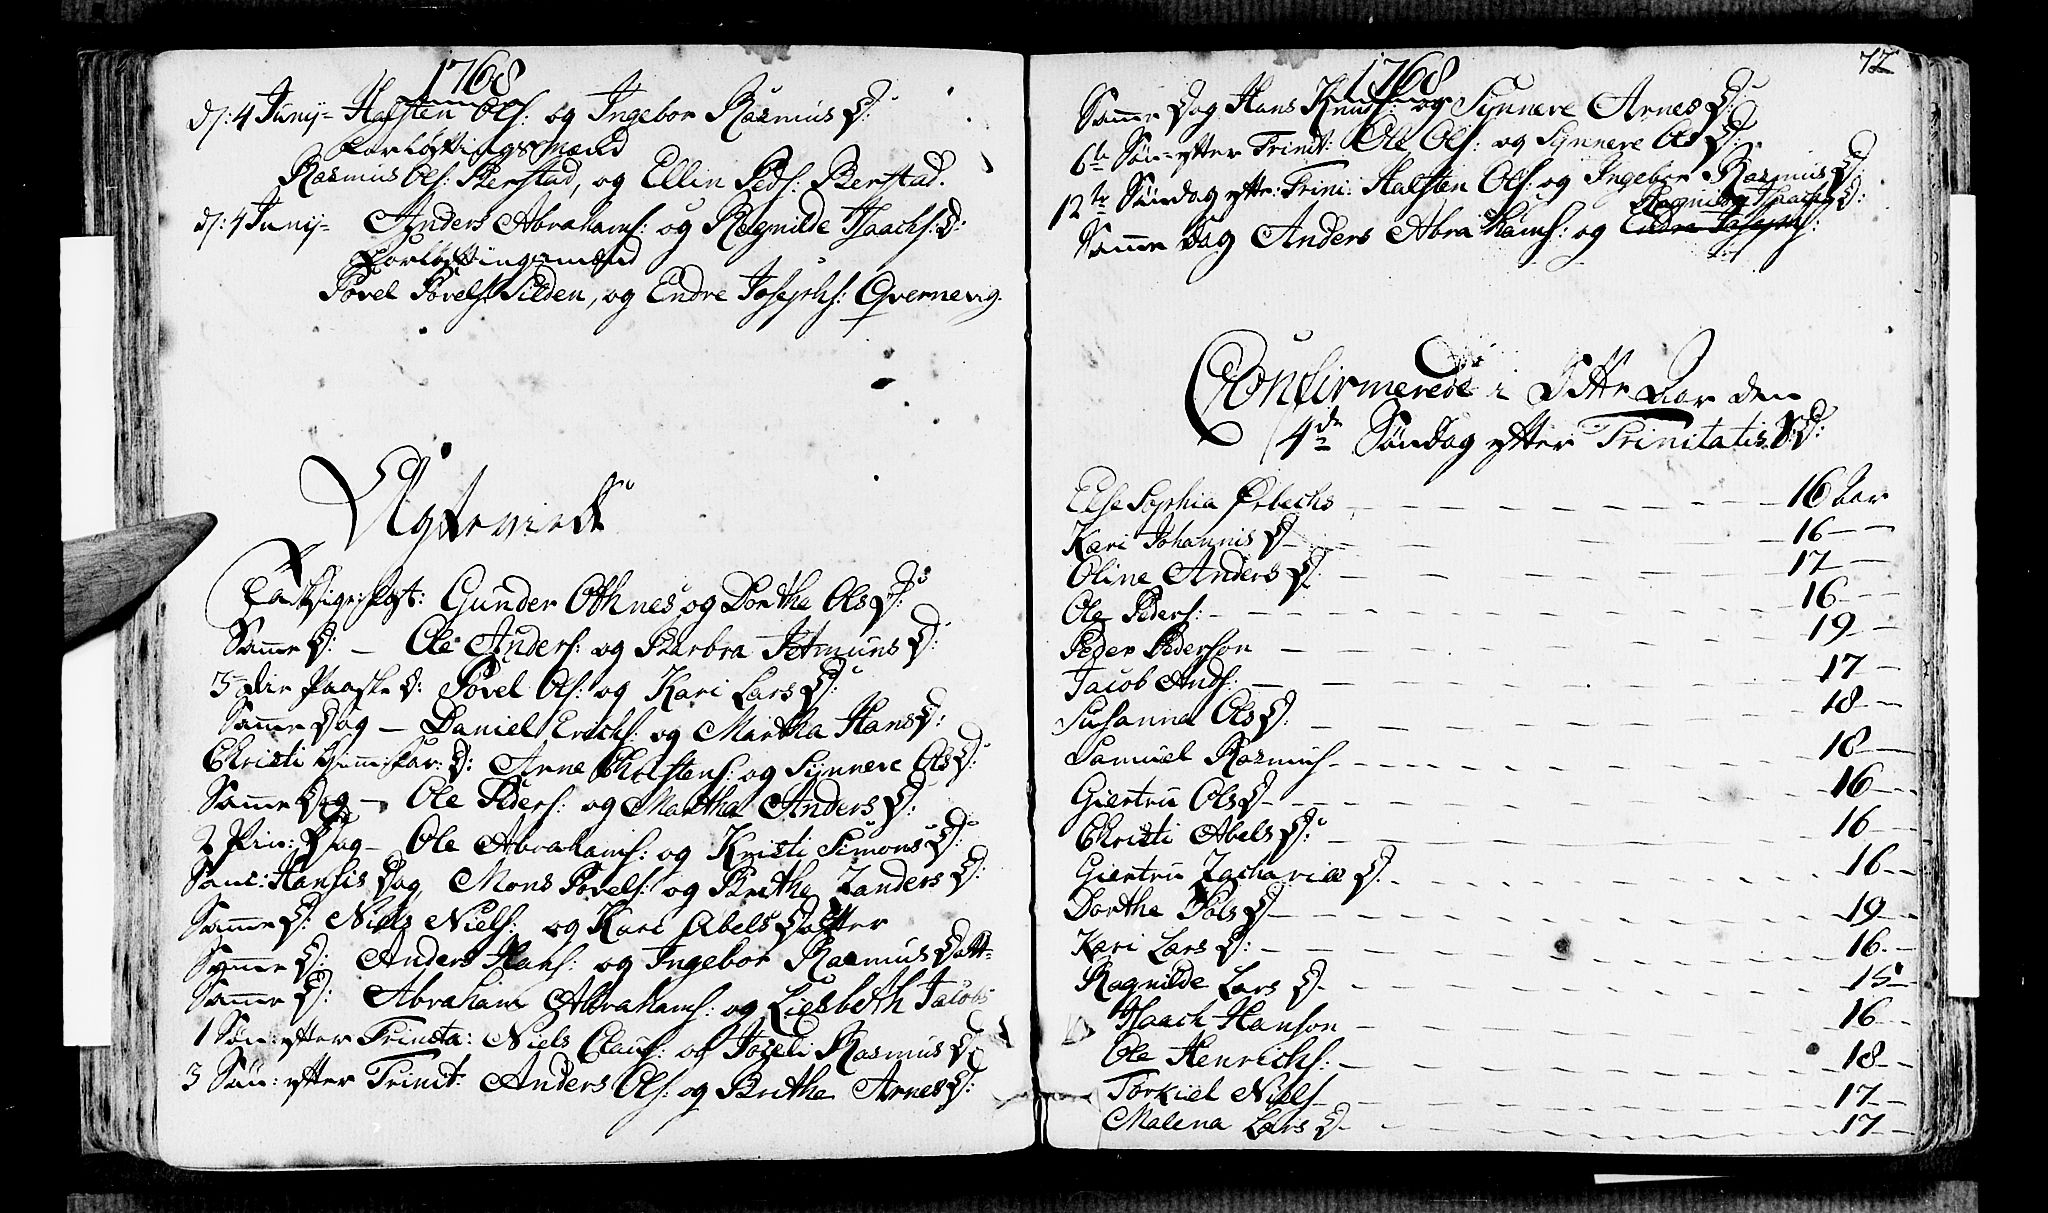 1768
d: 4 Junij= Halsten Ols: og Ingebor Rasmus D:
Forløftingsmænd
Rasmus Ols: Berstad, og Ellin Peds: Berstad.
d: 4 Junij= Anders Abrahams: og Ragnilde Isachs: D:
Forløftingsmænd
Povel Povels: Silden, og Endre Josephs: Qvernevig.
Ægteviede
Gunder Othnes og Dorthe Ols D:
Samme D: – Ole Anders: og Barbra Jetmuns D:
3die Paaske D: Povel Ols: og Kari Lars D:
Samme Dag – Daniel Erichs: og Martha Hans D:
Christi Himmelfar: D: Arne Tholstens: og Synnere Ols D:
Samme Dag – Ole Peders: og Martha Anders D:
2 Pin: Dag – Ole Abrahams: og Kristi Simons D:
Sanc: Hansis Dag Mons Povels: og Brithe Zanders D:
Samme D: Niels Niels: og Kari Abels Datter
Samme D: Anders Hans: og Ingebor Rasmus Datt=
Samme D: Abraham Abrahams: og Liesbeth Jacobs
1 Søn: efter Trinita: Niels Claus: og Joseli Rasmus D:
3 Søn: efter Trinit: Anders Ols: og Brithe Arnes D:
72
1768
Samme Dag Hans Knuds: og Synnere Arnes D:
6te Søn= efter Trinit: Ole Ols: og Synnere Ols D:
12te Søndag eftr: Trini: Halsten Ols: og Ingebor Rasmus D:
Ragnilde Isachs D:
Samme Dag Anders Abrahams: og Endre Josephs:
Confirmerede i Dette Aar den
4de Søndag efter Trinitatis D:
Else Sophia Ørbechs – 16 Aar
Kari Johannis D – 16 –
Oline Anders D: – 17 –
Ole Peders: – 16 –
Peder Pederson – 19 –
Jacob Ands: – 17 –
Susanna Ols D: – 18 –
Samuel Rasmus – 18 –
Giertru Ols D – 16 –
Christi Abels D: – 16 –
Giertru Zachariæ D – 16 –
Dorthe Pols D – 19 –
Kari Lars D: – 16 –
Ragnilde Lars D – 15 –
Isaach Hanson – 16 –
Ole Henrichs: – 18 –
Torkiel Niels – 17 –
Malena Lars D – 17 –